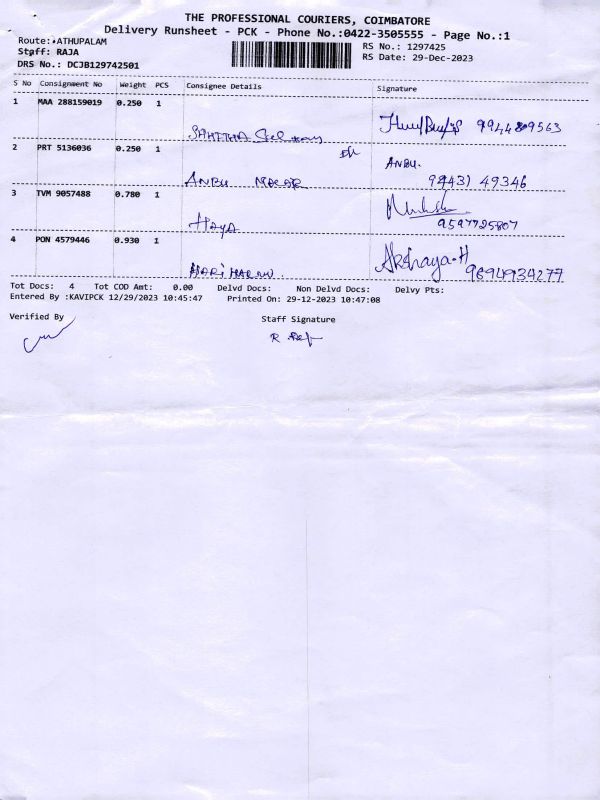 THE PROFESSIONAL COURIERS, COIMBATORE
Delivery Runsheet - PCK - Phone No.:0422-3505555 - Page No.:1
Route: ATHUPALAM
RS No.: 1297425
Staff: RAJA
RS Date: 29-Dec-2023
DRS No.: DCJB129742501
S No Consignment No Weight PCS Consignee Details Signature
1 MAA 288159019 0.250 1
SAHITHA
2 PRT 5136036 0.250 1 ANBU.
ANBU 94431 49346
3 TVM 9057488 0.780 1
Haya 9597725807
4 PON 4579446 0.930 1 Akshaya-H
9894934277
Tot Docs: 4 Tot COD Amt: 0.00 Delvd Docs: Non Delvd Docs: Delvy Pts:
Entered By :KAVIPCK 12/29/2023 10:45:47 Printed On: 29-12-2023 10:47:08
Verified By Staff Signature